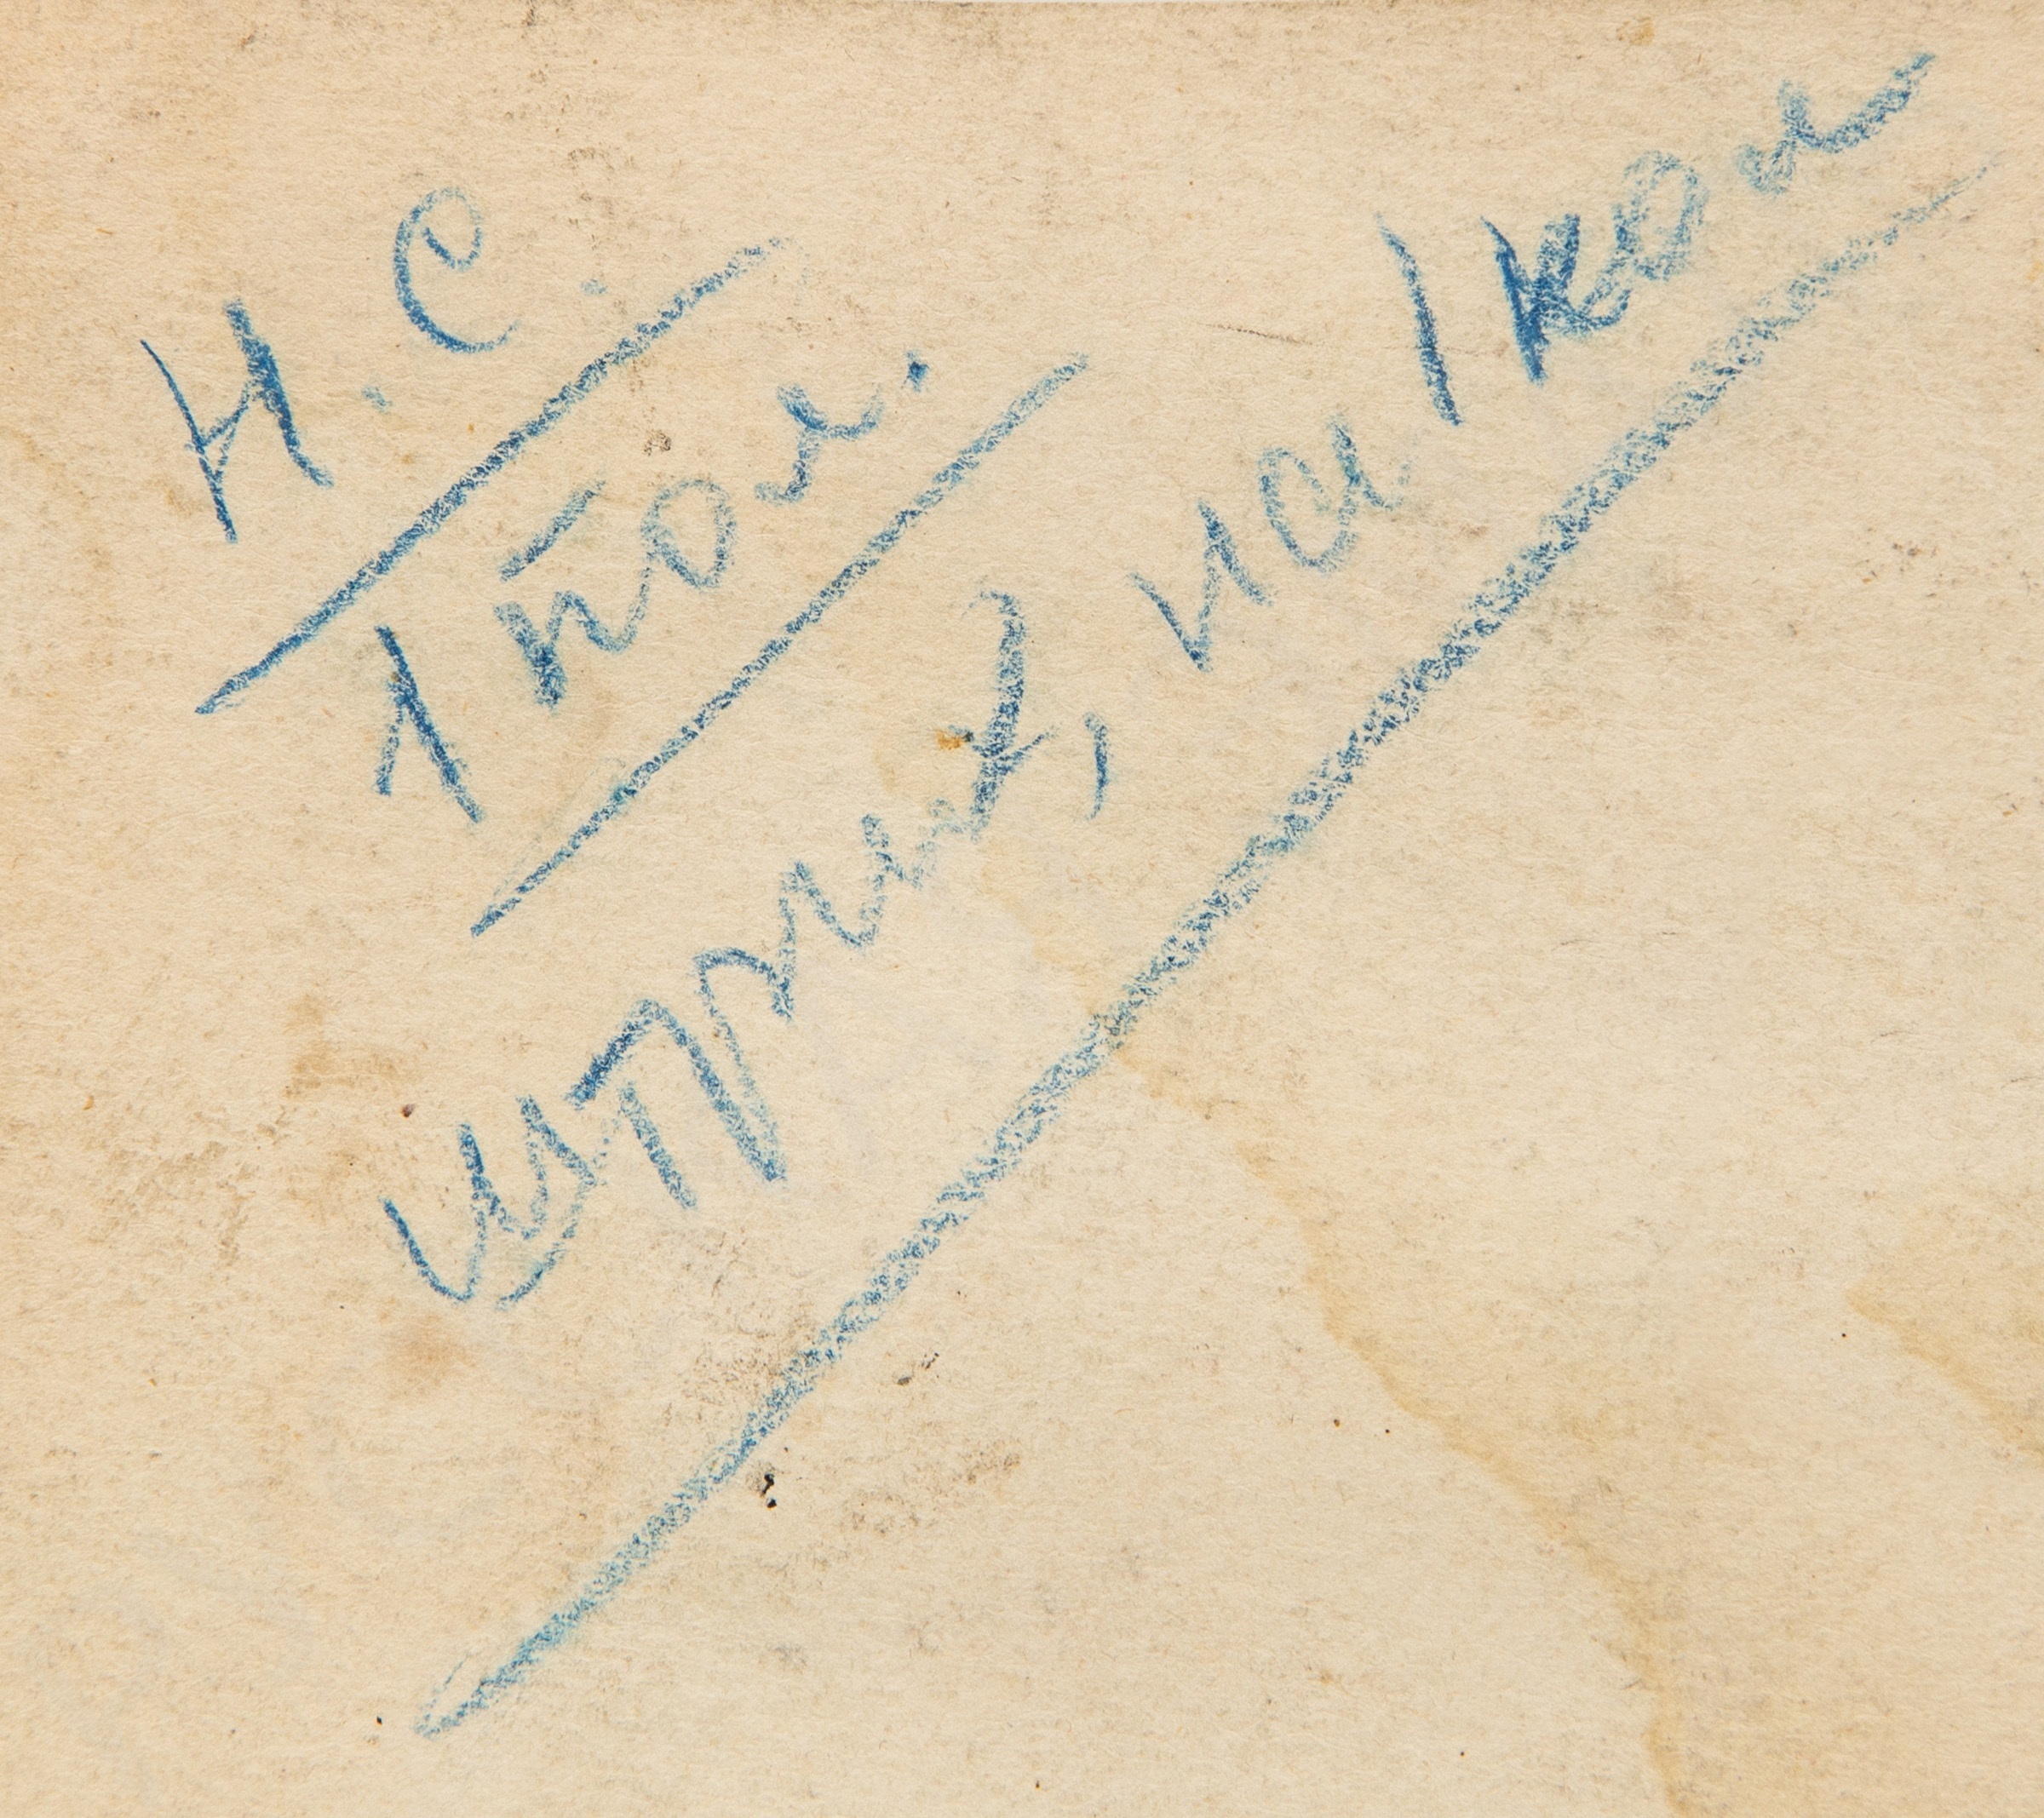 Н.С.
1 кол.
штрих, на 1 кол